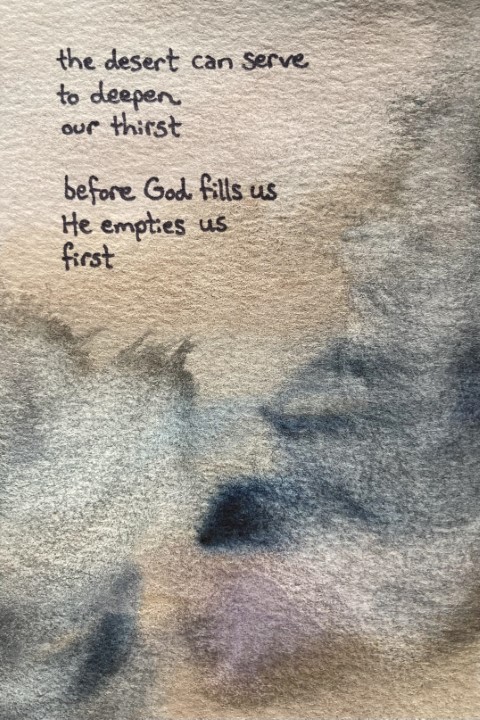 the desert can serve
to deepen
our thirst
before God fills us
He empties us
first